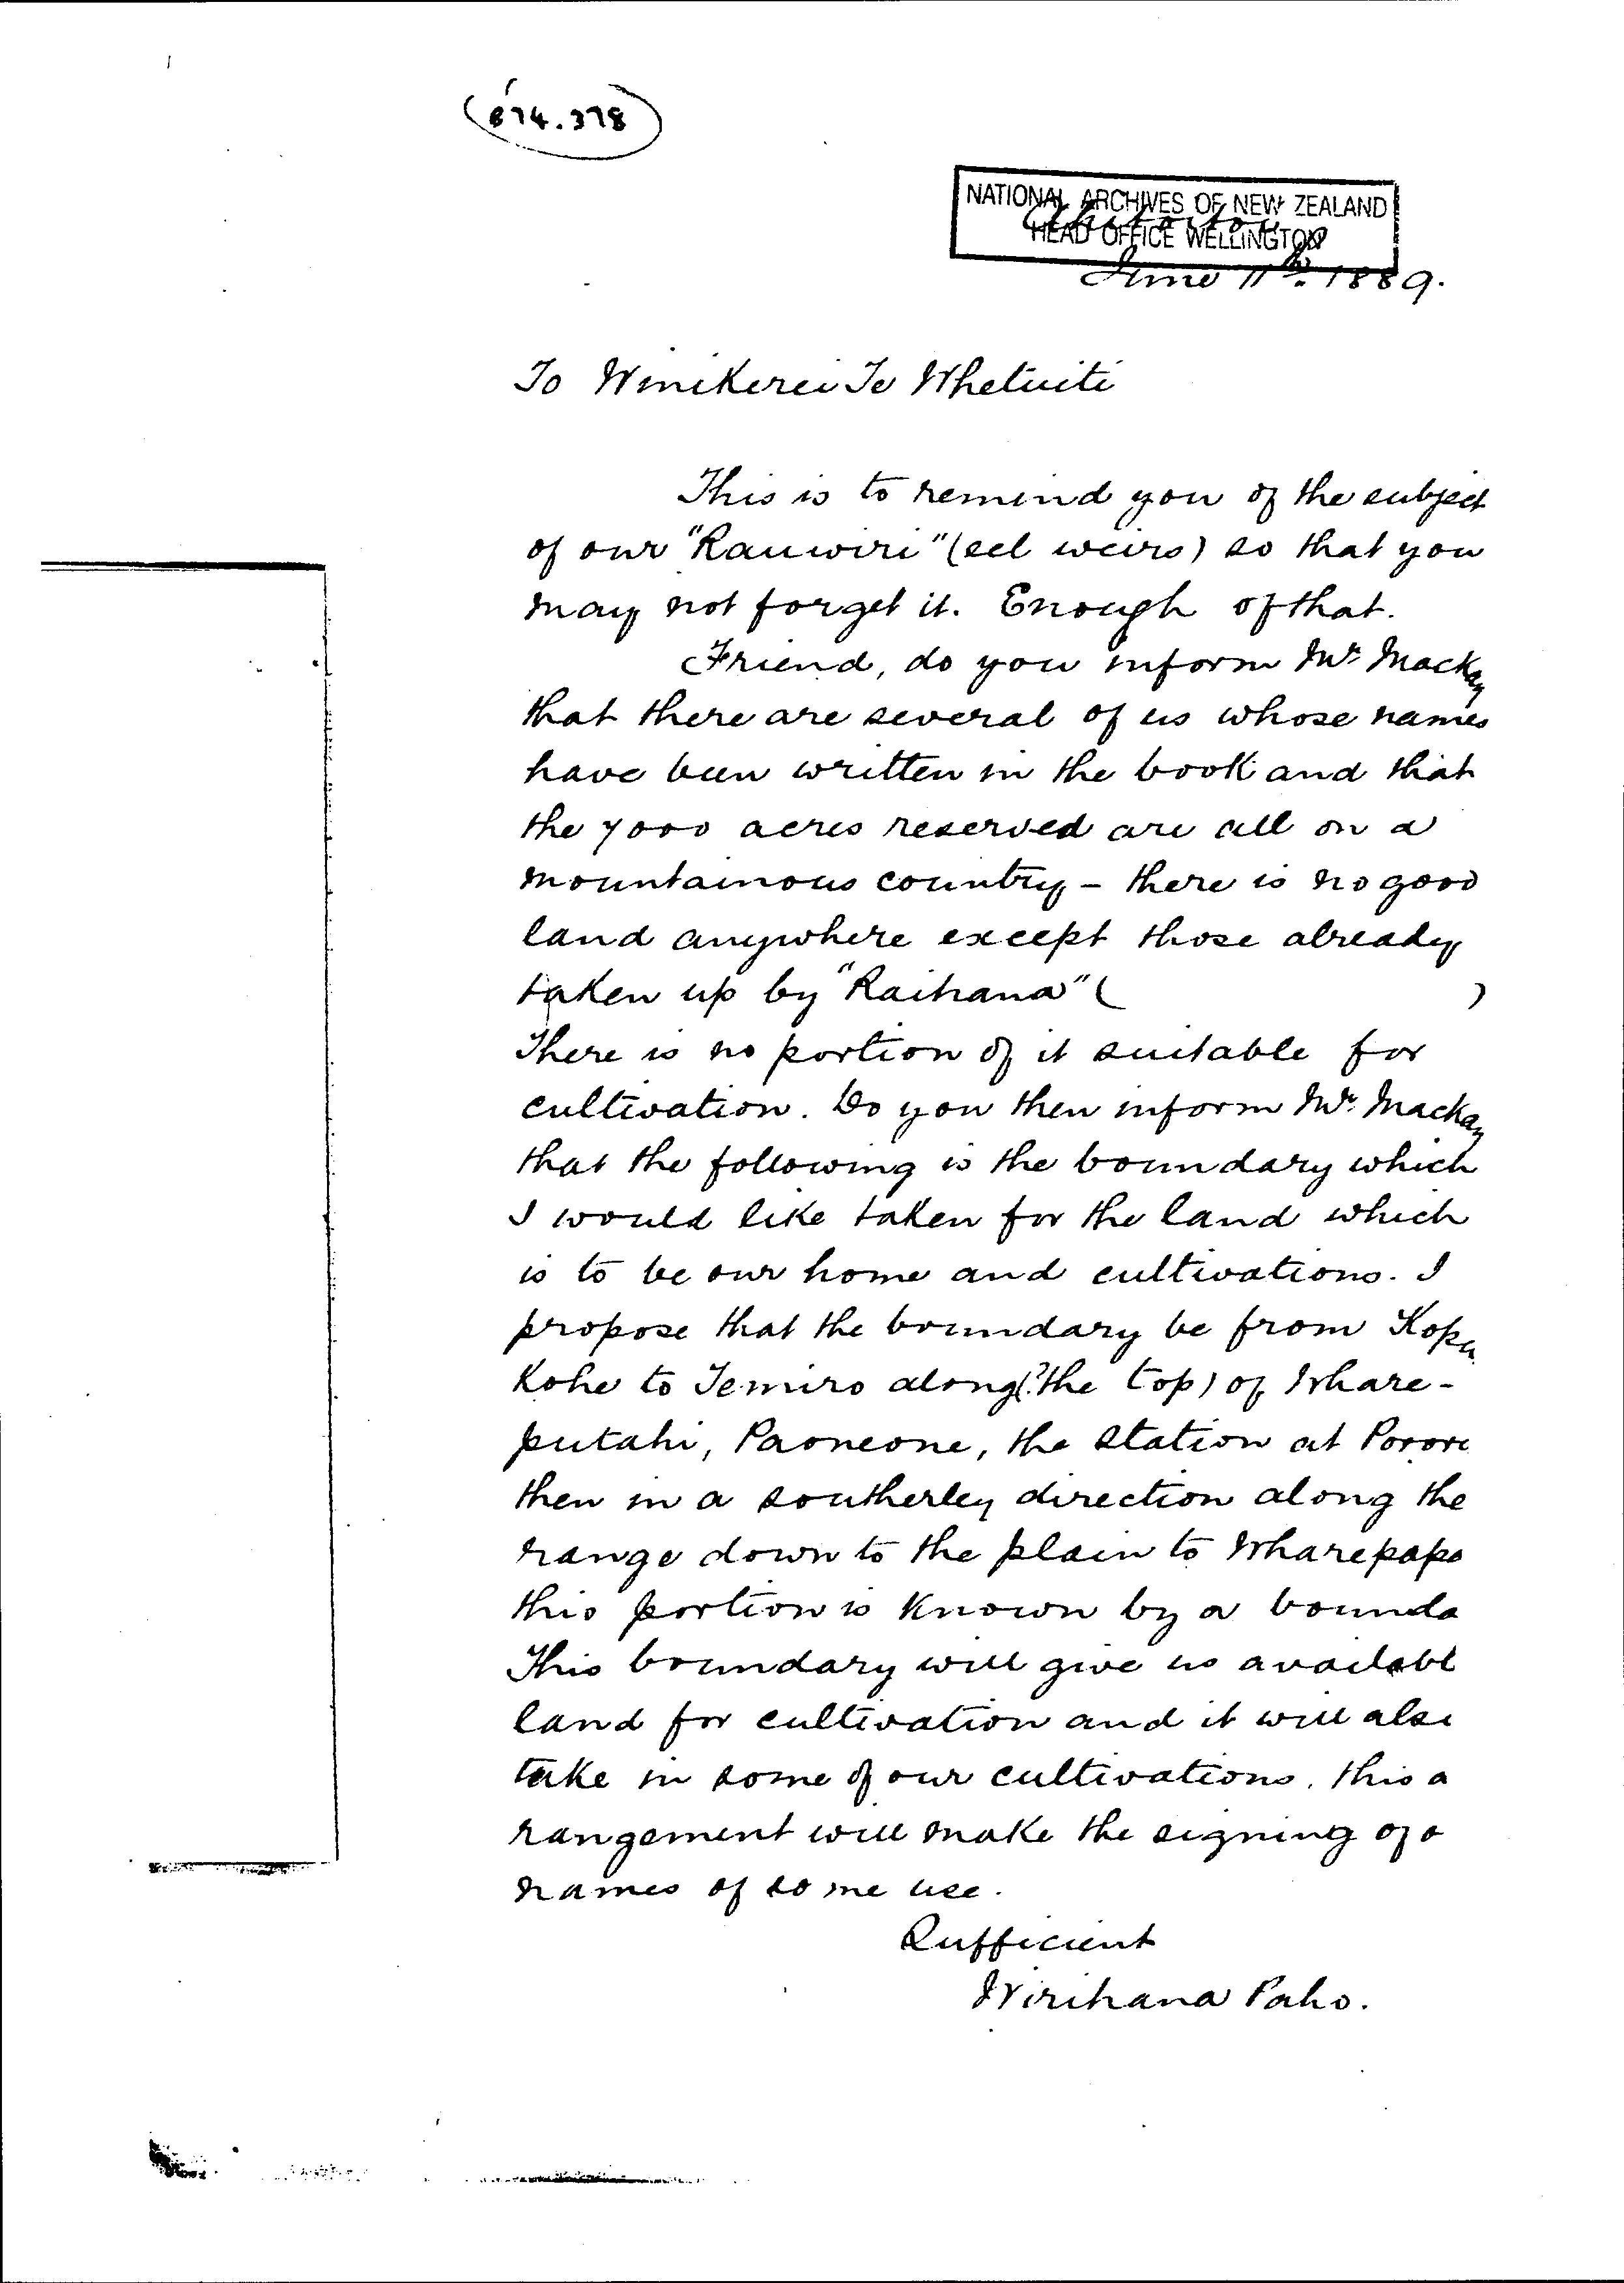 674.378
NATIONAL ARCHIVES OF NEW ZEALAND
HEAD OFFICE WELLINGTON
June 11th. 1889.
To Winikerei Te Whetuiti
This is to remind you of the subject
of our "Rauwiri" (eel weirs) so that you
may not forget it. Enough of that.
Friend, do you inform Mr. Mackay
that there are several of us whose names
have been written in the book and that
the 7000 acres reserved are all on a
mountainous country - there is no good
land anywhere except those already
taken up by "Raihana" ( )
There is no portion of it suitable for
cultivation. Do you then inform Mr. Mackay
that the following is the boundary which
I would like taken for the land which
is to be our home and cultivations. I
propose that the boundary be from Kopu
Kohe to Temiro along (? the top) of Whare-
putahi, Paoneone, the station at Porore
then in a southerley direction along the
range down to the plain to Wharepapa
this portion is known by a bounda
This boundary will give us availabl
land for cultivation and it will also
take in some of our cultivations, this a
rangement will make the signing of o
names of some use.
Sufficient
Wirihana Paho.